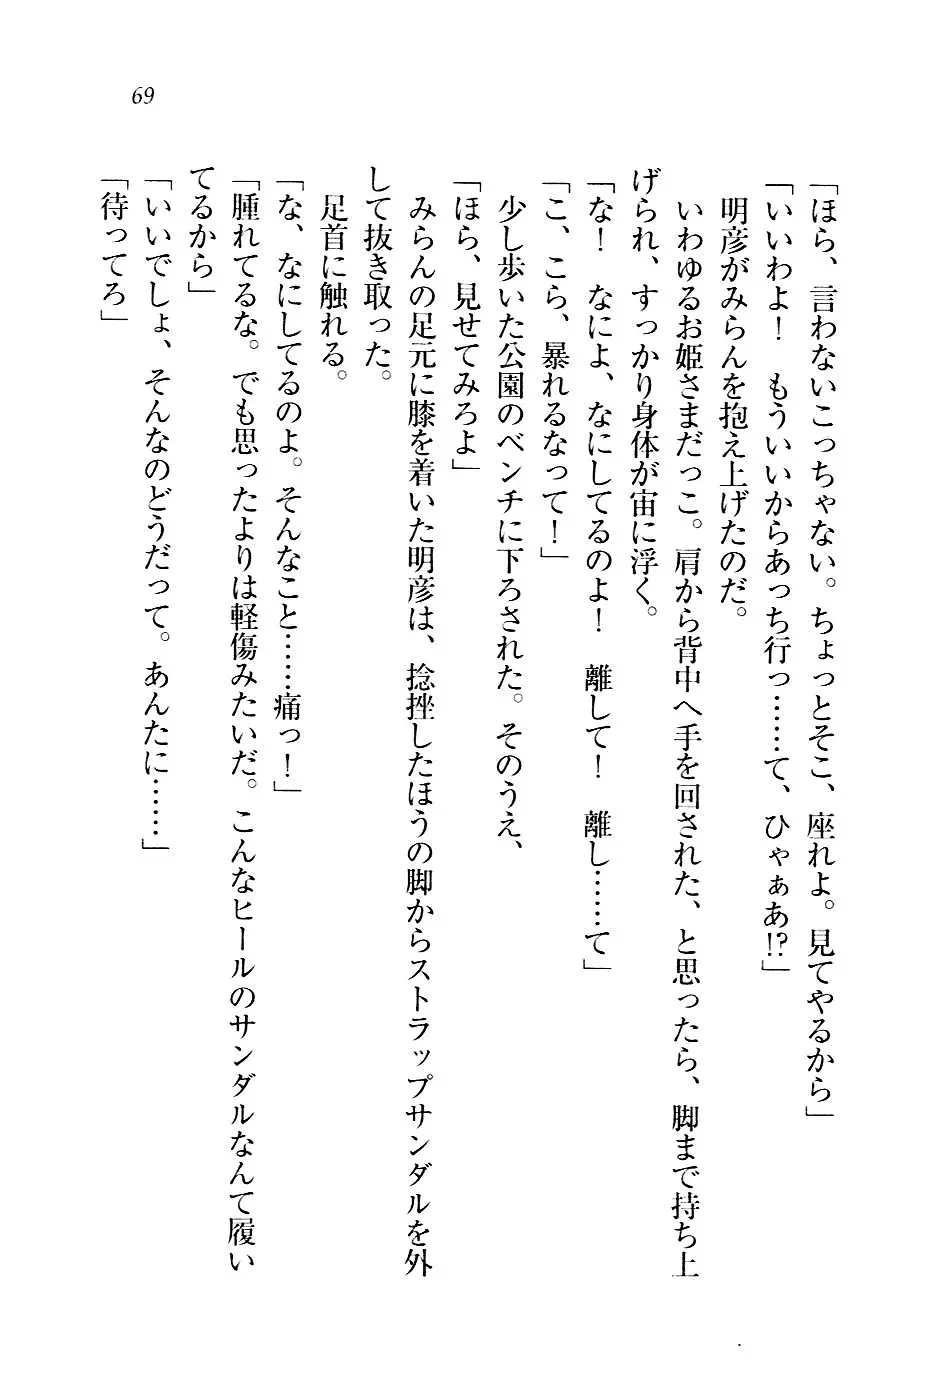 69
「ほら、言わないこっちゃない。ちょっとそこ、座れよ。見てやるから」
「いいわよ！　もういいからあっち行っ……て、ひゃぁあ!?」
　明彦がみらんを抱え上げたのだ。
　いわゆるお姫さまだっこ。肩から背中へ手を回された、と思ったら、脚まで持ち上
げられ、すっかり身体が宙に浮く。
「な！　なによ、なにしてるのよ！　離して！　離し……て」
「こ、こら、暴れるなって！」
　少し歩いた公園のベンチに下ろされた。そのうえ、
「ほら、見せてみろよ」
　みらんの足元に膝を着いた明彦は、捻挫したほうの脚からストラップサンダルを外
して抜き取った。
　足首に触れる。
「な、なにしてるのよ。そんなこと……痛っ！」
「腫れてるな。でも思ったよりは軽傷みたいだ。こんなヒールのサンダルなんて履い
てるから」
「いいでしょ、そんなのどうだって。あんたに……」
「待ってろ」